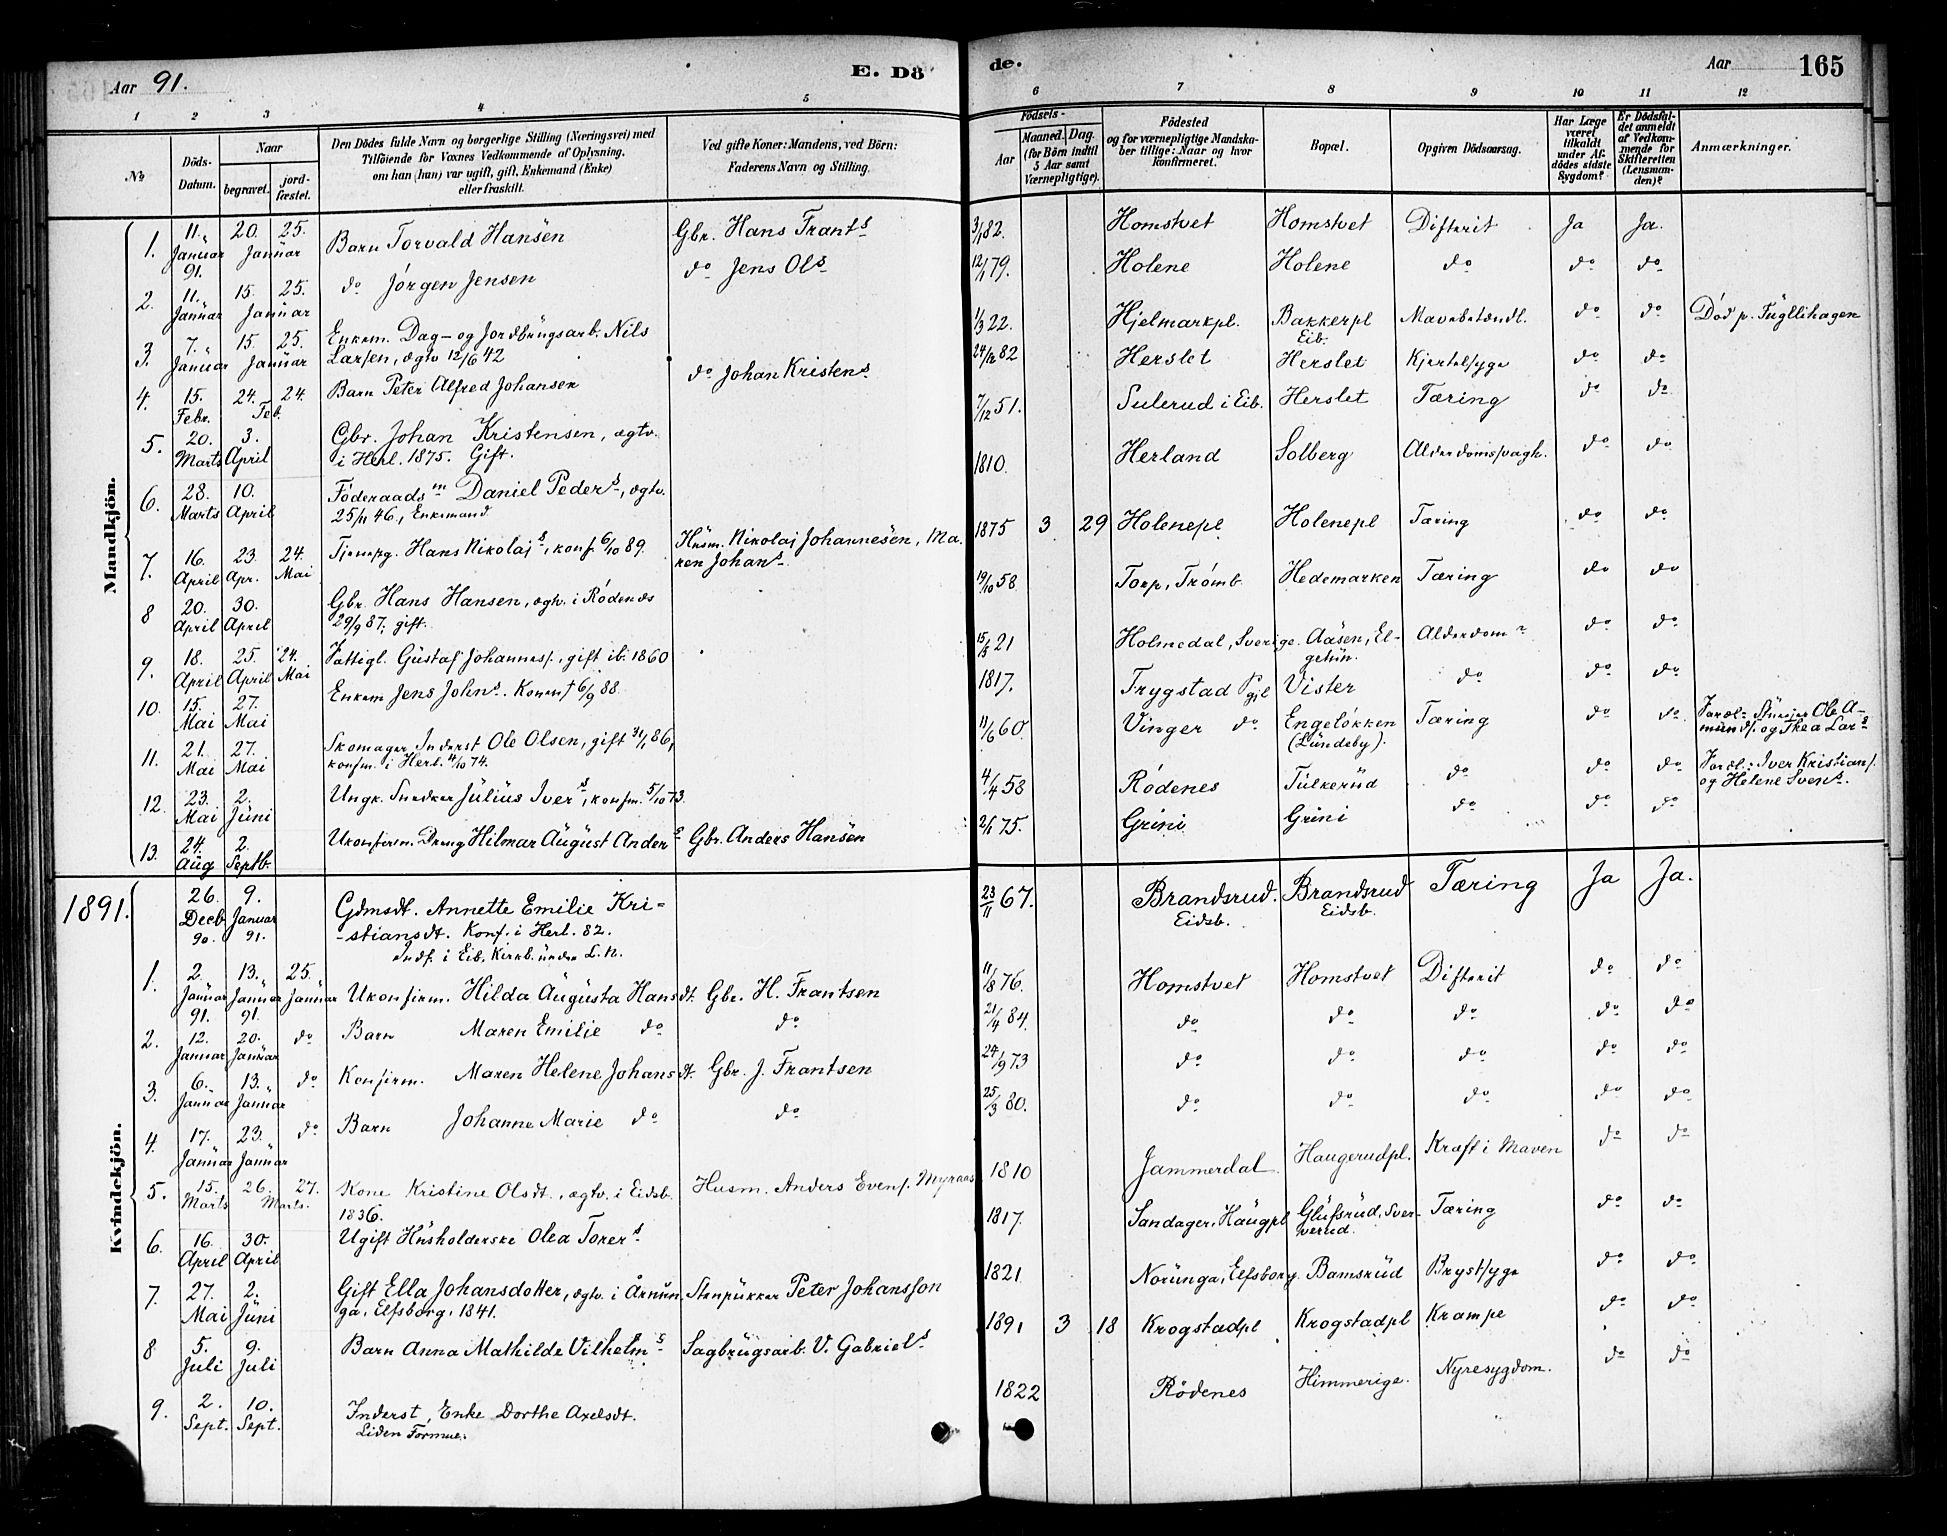 Aar 91.
E. Dö
de.
Aar
165
1 2 3 4 5 6 7 8 9 10 11 12
No
Döds-Datum.
Naar
begravet.
jord-fæstet.
Den Dödes fulde Navn og borgerlige Stilling (Næringsvei) med
Tilföiende for Voxnes Vedkommende af Oplysning,
om han (hun) var ugift, gift, Enkemand (Enke)
eller fraskilt.
Ved gifte Koner: Mandens, ved Börn:
Faderens Navn og Stilling.
Födsels-
Aar
Maaned. Dag.
(for Börn indtil
5 Aar samt
Værnepligtige).
Födested
og for værnepligtige Mandska-
ber tillige: Naar og hvor
konfirmeret.
Bopæl.
Opgiven Dödsaarsag.
Har Læge
været
tilkaldt
under Af-
dödes sidste
Sygdom?
Er Dödsfal-
det anmeldt
af Vedkom-
mende for
Skifteretten
(Lensman-
den)?
Anmærkninger.
Mandkjön.
1. 11. Januar 91. 20. Januar 25. Barn Torvald Hansen Gbr. Hans Frants 3/1 82. Homstvet Homstvet Difterit Ja Ja.
2. 11. Januar 15. Januar 25. do Jørgen Jensen do Jens Ols 12/1 79. Holene Holene do do do
3. 7. Januar 15. Januar 25. Enkem. Dag- og Jordbrugsarb. Nils
Larsen, ægtv 12/6 42 1/3 22. Hjelmarkpl. Bakkerpl Eib. Mavebetændl. do do Död p. Tugllihagen
4. 15. Febr. 24. Feb. 24. Barn Peter Alfred Johansen do Johan Kristens 24/12 82 Herslet Herslet Kjertelsyge do do
5. 20. Marts 3. April Gbr. Johan Kristensen, ægtv.
i Herl. 1875. Gift. 7/12 51. Sulerud i Eib. Herslet Tæring do do
6. 28. Marts 10. April Föderaadsm Daniel Peders, ægtv.
25/11 46., Enkemand 1810. Herland Solberg Alderdomssvagh. do do
7. 16. April 23. Apr. 24. Mai Tjenestg. Hans Nikolajs, konf. 6/10 89. Husm. Nikolaj Johannesen, Ma-
ren Johans 1875 3 29 Holenepl Holenepl Tæring do do
8 20. April 30. April Gbr. Hans Hansen, ægtv. i Rødenes
29/9 87; gift. 19/10 58 Torp, Trømb. Hedemarken Tæring do do
9. 18. April 25. April 24. Mai Fattigl. Gustaf Johanness., gift ib. 1860 15/5 21 Holmedal, Sverige. Aasen, El-
getun. Alderdom do do
10. 15. Mai 27. Mai Enkem Jens Johns. Konen † 6/9 88. 1817. Trygstad Pgjl Vister do do do
11. 21. Mai 27. Mai Skomager Inderst Ole Olsen, gift 31/1 86,
konfm. i Herl. 4/10 74. 11/6 60. Vinger do Engeløkken
(Lundeby). Tæring do do Foræl: Ole A-
munds. og Thea Lars
12. 23. Mai 2. Juni Ungk. Snedker Julius Ivers, konfm. 5/10 73. 4/4 58 Rödenes Tulkerud do do do Foræl.: Iver Kristians.
og Helene Svens.
13. 24. Aug 2. Septb. Ukonfirm. Dreng Hilmar August Anders Gbr. Anders Hansen 2/1 75. Grini Grini do do do
1891.
Kvindekjön.
26. Decb 90. 9. Januar 91. Gdmsdt. Annette Emilie Kri-
-stiansdt. Konf. i Herl. 82.
Indf. i Eib. Kirkb. under L. N. 23/11 67. Brandsrud. Eidsb. Brandsrud Eidsb. Tæring Ja Ja.
1. 2. Januar 91. 13. Januar 91. 25. Januar Ukonfirm. Hilda Augusta Hansdt. Gbr. H. Frantsen 11/8 76. Homstvet Homstvet Difterit do do
2. 12. Januar 20. Januar do Barn Maren Emilie do do 21/4 84. do do do do do
3. 6. Januar 13. Januar do Konfirm. Maren Helene Johansdt. Gbr. J. Frantsen 24/9 73 do do do do do
4. 17. Januar 23. Januar do Barn Johanne Marie do do 25/3 80. do do do do do
5. 15. Marts 26. Marts. 27. Kone Kristine Olsdt., ægtv. i Eidsb.
1836. Husm. Anders Evens. Myraas 1810 Jammerdal Haugerudpl. Kræft i Maven do do
6. 16. April 30. April Ugift Husholderske Olea Torers 1817. Sandager, Haugpl Glufsrud, Sver-
verud. Tæring do do
7. 27. Mai 2. Juni Gift Ella Johansdotter, ægtv. i Ärnun-
ga, Elfsborg, 1841. Stenpukker Peter Johansson 1821 Norunga, Elfsborg. Bamsrud Brystsyge do do
8 5. Juli 9. Juli Barn Anna Mathilde Vilhelms Sagbrugsarb. V. Gabriels 1891 3 18 Krogstadpl Krogstadpl Krampe do do
9. 2. Sept. 10. Sept. Inderst, Enke Dorthe Axelsdt.
Liden Formue. 1822 Rödenes Himmerige. Nyresygdom. do do